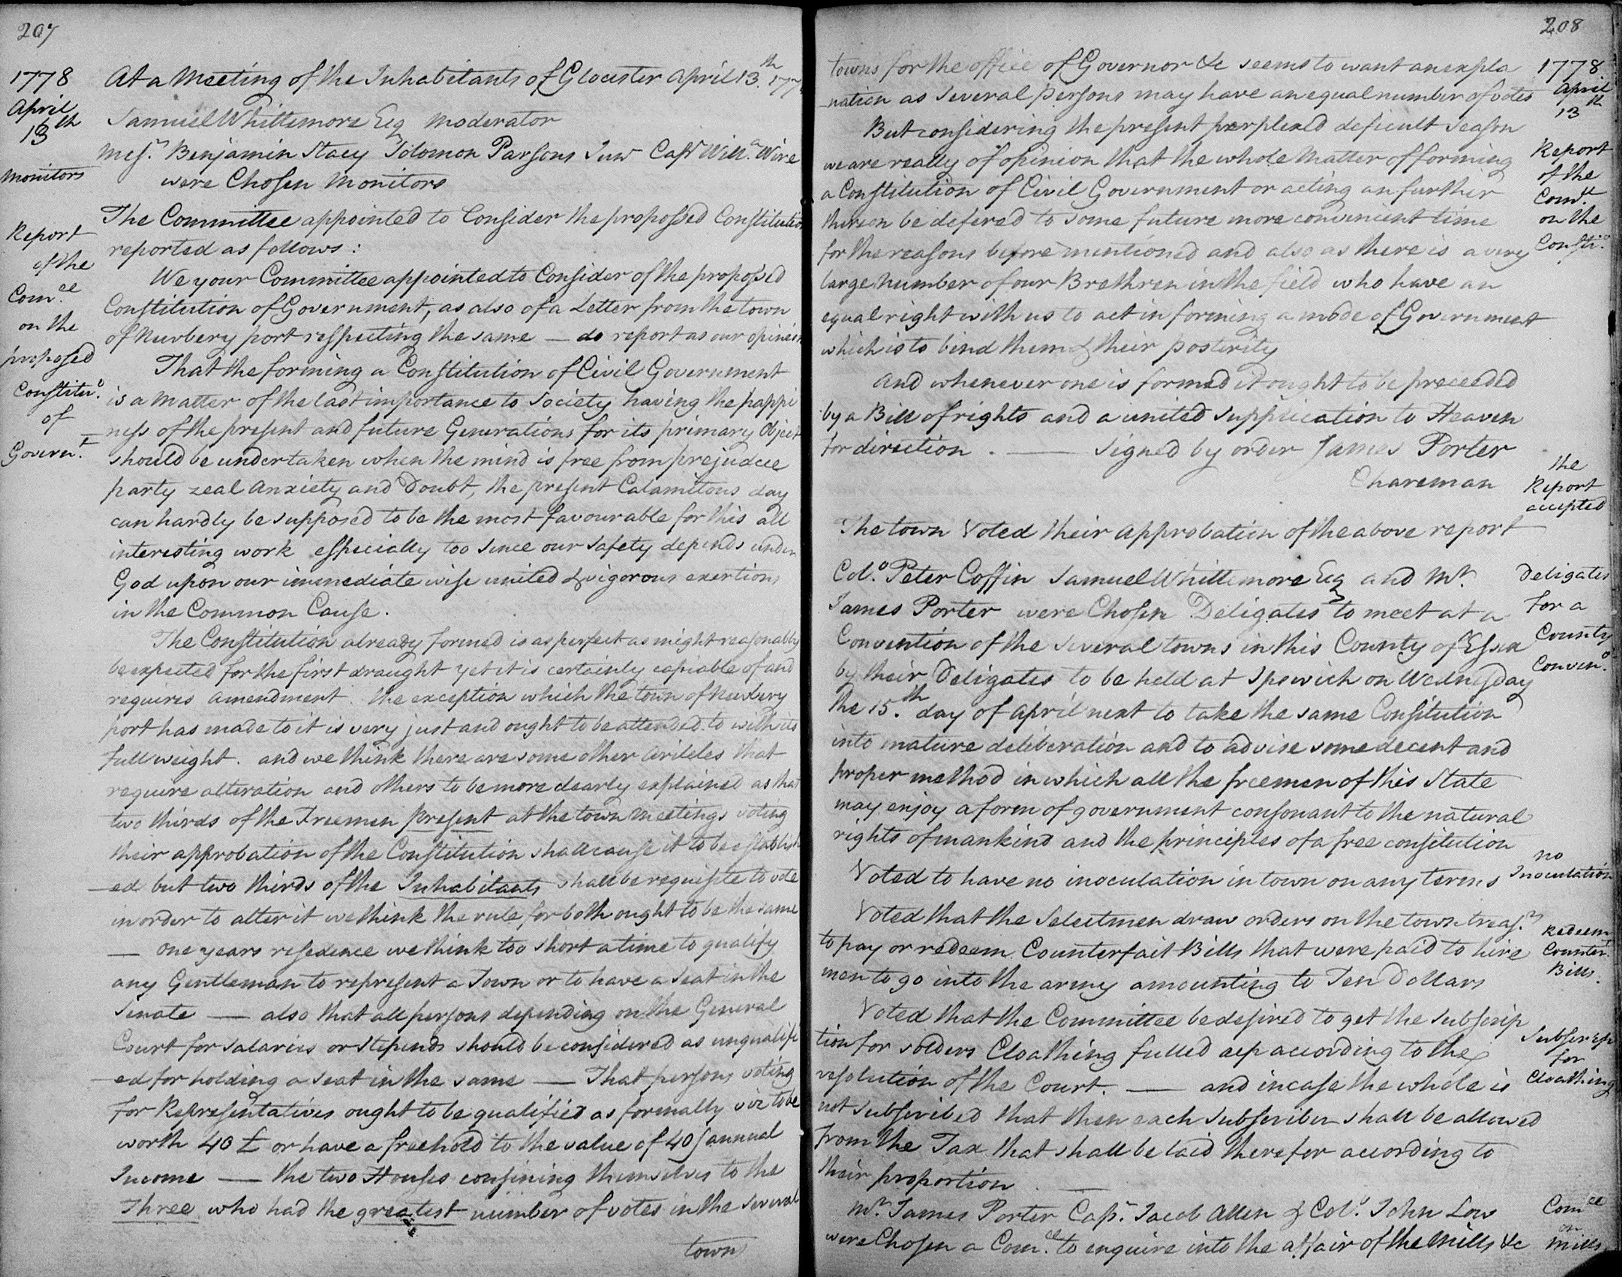 207
1778
April
13th
monitors
Report
of the
Comee
on the
proposed
Constituo.
of
Governt.
At a Meeting of the Inhabitants of Glocester April 13th. 177
Samuel Whittemore Esq moderator
Messrs. Benjamin Stacy Solomon Parsons Junr Capt Willm Wire
were Chosen Monitors
The Committee appointed to Consider the proposed Constitution
reported as follows:
We your Committee appointed to Consider of the proposed
Constitution of Government, as also of a Letter from the town
of Newbery port respecting the same — do report as our opinion
That the forming a Constitution of Civil Government
is a matter of the last importance to Society having the happi
ness of the present and future Generations for its primary Object
should be undertaken when the mind is free from prejudice
party zeal Anxiety and Doubt, the present Calamitous day
can hardly be supposed to be the most favourable for this all
interesting work especially too since our safety depends under
God upon our immediate wise united & vigorous exertions
in the Common Cause.
The Constitution already formed is as perfect as might reasonably
be expected for the first draught yet it is certainly capiable of and
requires amendment. the exception which the town of Newbery
port has made to it is very just and ought to be attended to with its
full weight. and we think there are some other Articles that
require alteration and others to be more clearly explained as that
two thirds of the Freemen present at the town meetings voting
their approbation of the Constitution shall cause it to be establish
ed but two thirds of the Inhabitants shall be requisite to vote
in order to alter it we think the rule for both ought to be the same
— one years residence we think too short a time to qualify
any Gentleman to represent a Town or to have a seat in the
Senate — also that all persons depending on the General
Court for Salaries or stipends should be considered as unqualifi
ed for holding a seat in the same — That persons voting
for Representatives ought to be qualified as formally viz to be
worth 40 £ or have a freehold to the value of 40/ annual
Income — the two Houses confining themselves to the
Three who had the greatest number of votes in the several
town
208
1778
April
13th
Report
of the
Comt.
on the
Constio.
the
Report
accepted
Deligates
for a
County
Conveno.
no
Inoculation
redeem
Counter.
Bills.
Subscrip
for
Cloathing
Comee
on
Mills
towns for the office of Governor &c seems to want an expla
nation as several persons may have an equal number of votes
But considering the present perplexd deficult season
we are really of opinion that the whole matter of forming
a Constitution of Civil Government or acting an further
thereon be defered to some future more convenient time
for the reasons before mentioned and also as there is a very
large number of our Brethren in the field who have an
equal right with us to act in forming a mode of Government
which is to bind them & their posterity
And whenever one is formed it ought to be preceeded
by a Bill of rights and a united supplication to Heaven
for direction. — Signed by order James Porter
Chareman
The town Voted their approbation of the above report
Colo. Peter Coffin Samuel Whittemore Esq and Mr.
James Porter were Chosen Deligates to meet at a
Convention of the several towns in this County of Essex
by their Deligates to be held at Ipswich on Wednesday
the 15.th day of April next to take the same Constitution
into mature deliberation and to advise some decent and
proper method in which all the freemen of this State
may enjoy a form of government consonant to the natural
rights of mankind and the principles of a free constitution
Voted to have no inoculation in town on any terms
Voted that the Selectmen draw orders on the town treasr
to pay or redeem Counterfait Bills that were paid to hire
men to go into the army amounting to Ten Dollars
Voted that the Committee be desired to get the subscrip
tion for solders Cloathing fulled up according to the
resolution of the Court. — and in case the whole is
not subscribed that then each subscriber shall be allowed
from the Tax that shall be laid therefor according to
their proportion. —
Mr. James Porter Capt. Jacob Allen & Colo. John Low
were Chosen a Comee to enquire into the affair of the Mills &c